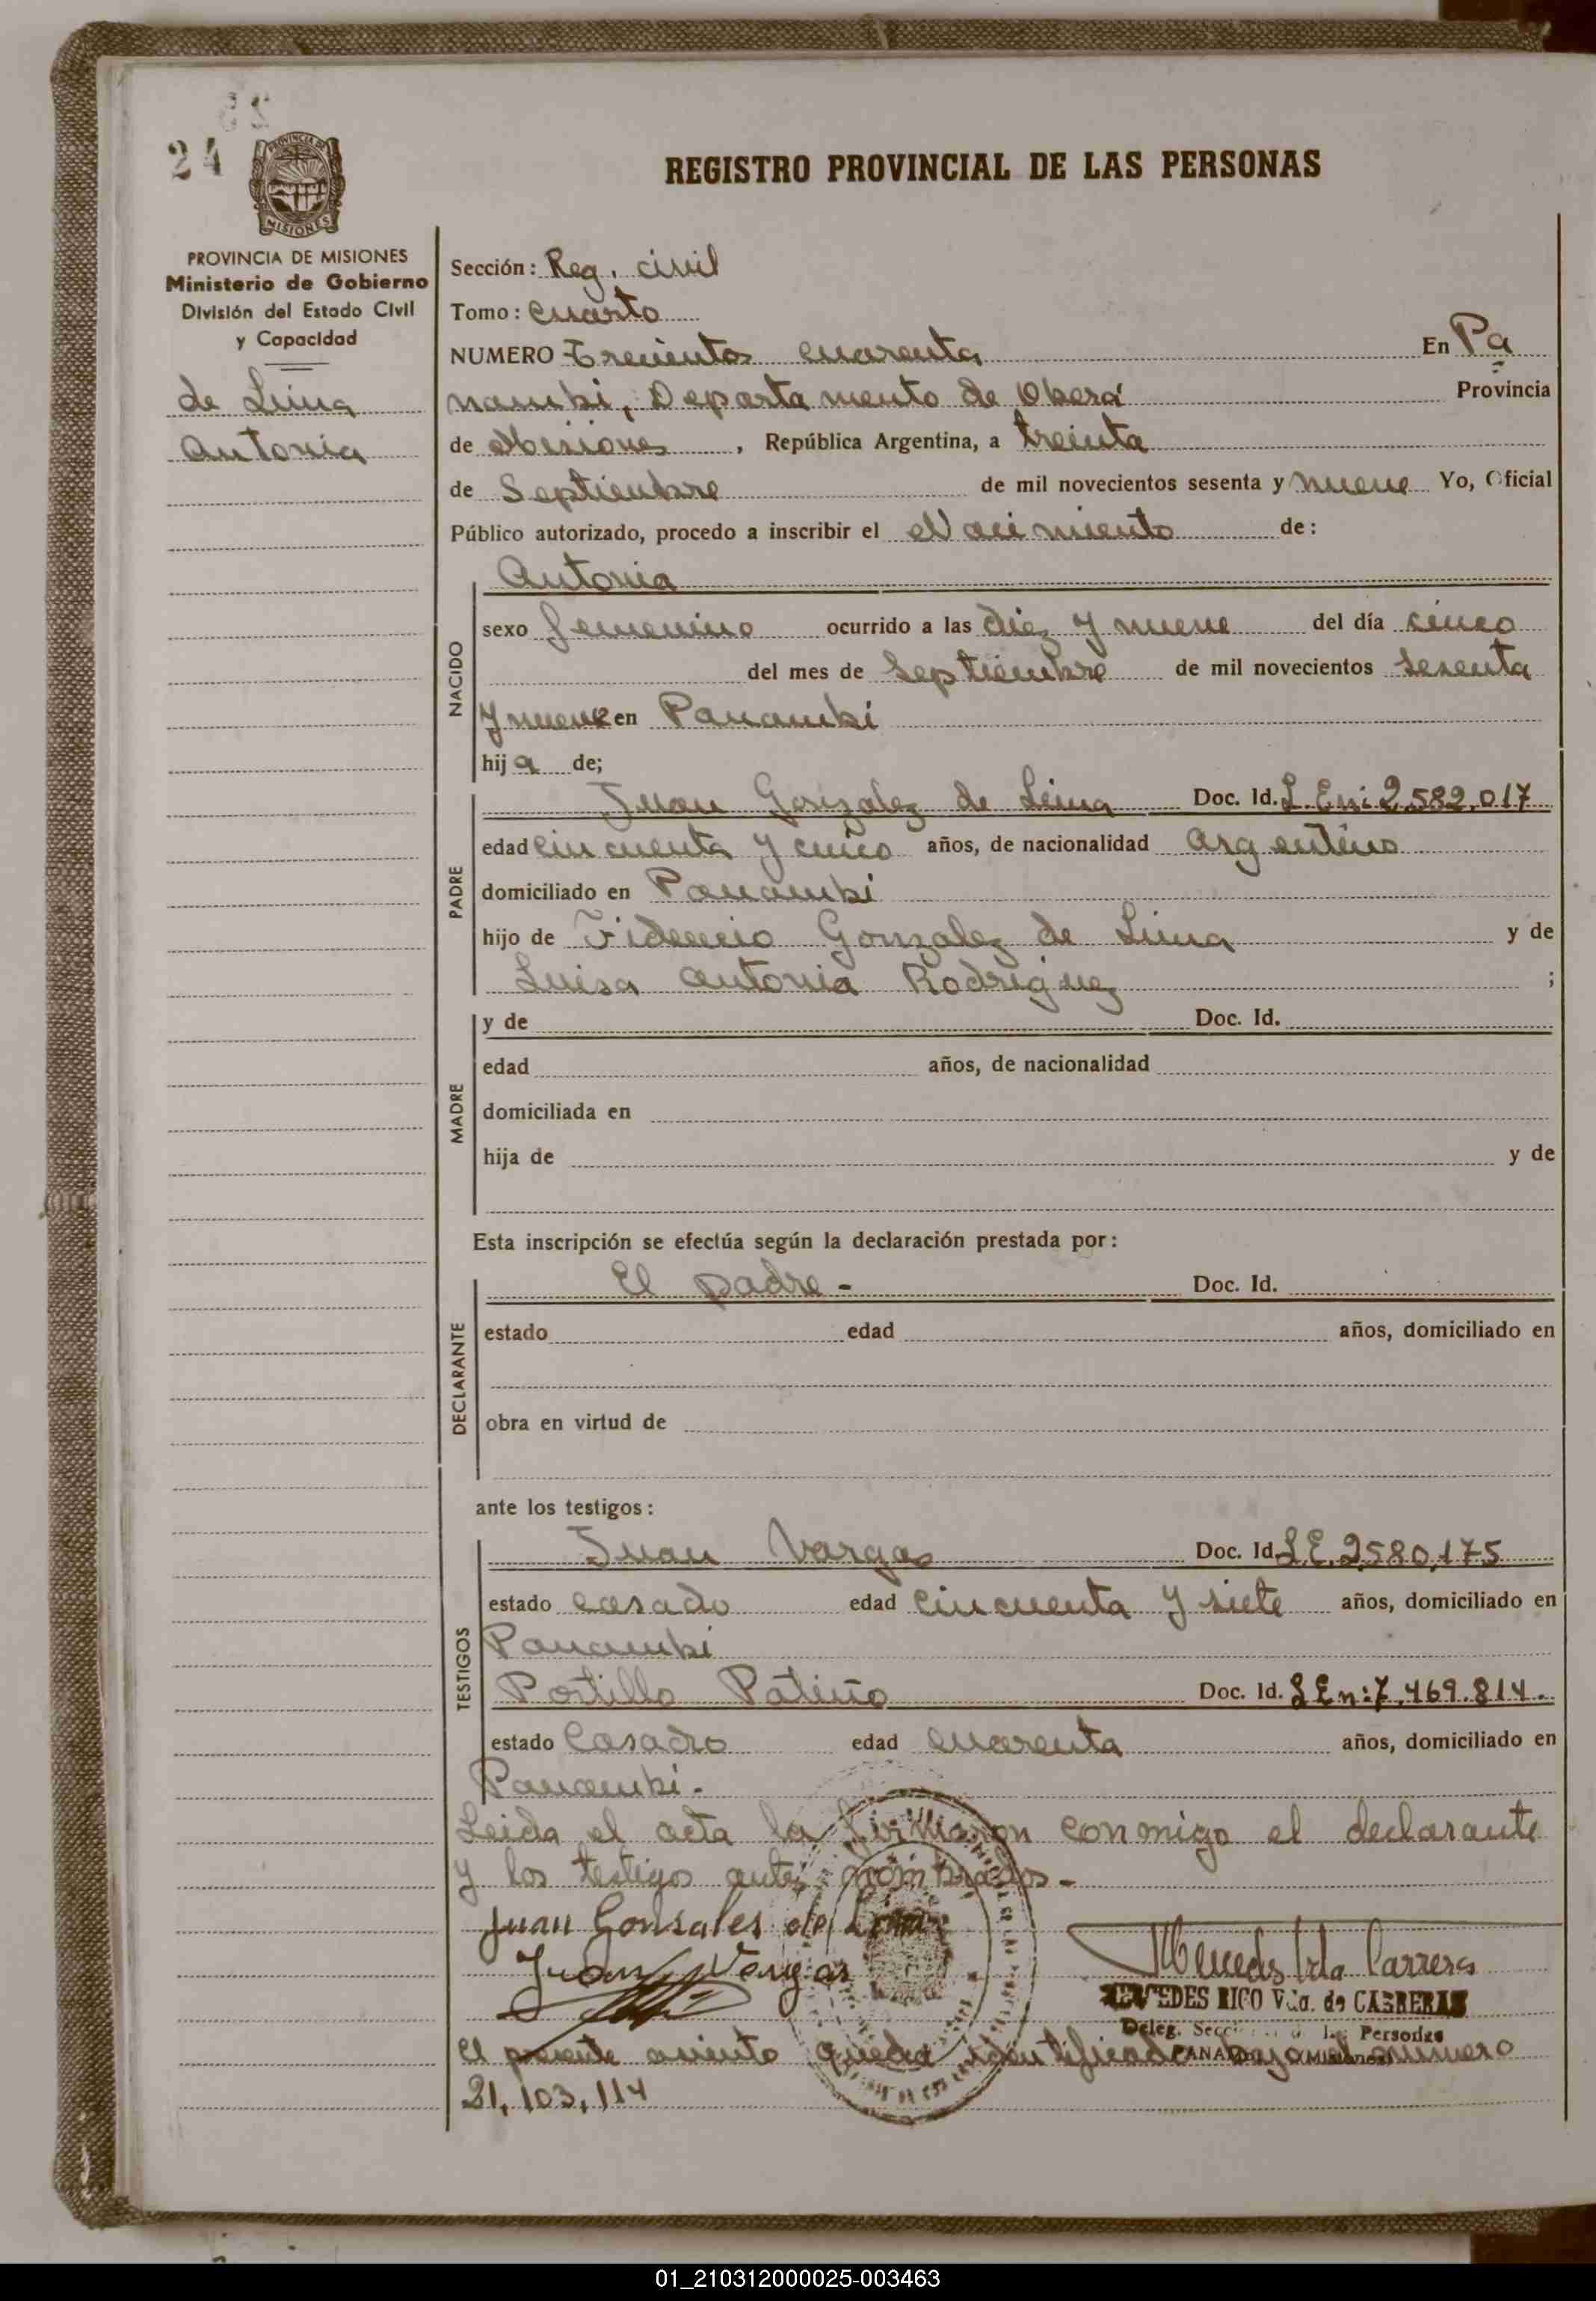 24
PROVINCIA DE
MISIONES
REGISTRO PROVINCIAL DE LAS PERSONAS
PROVINCIA DE MISIONES
Ministerio de Gobierno
División del Estado Civil
y Capacidad
de Lima
Antonia
Sección: Reg. civil
Tomo: Cuarto
NUMERO Trecientos cuarenta En Pa
nambi, Departamento de Oberá Provincia
de Misiones, República Argentina, a treinta
de Septiembre de mil novecientos sesenta y nueve Yo, Oficial
Público autorizado, procedo a inscribir el Nacimiento de:
Antonia
NACIDO
sexo femenino ocurrido a las diez y nueve del día cinco
del mes de Septiembre de mil novecientos sesenta
y nueve en Panambi
hija de;
PADRE
Juan Gonzalez de Lima Doc. Id. L. En: 2,582,017
edad cincuenta y cinco años, de nacionalidad Argentino
domiciliado en Panambi
hijo de Fidencio Gonzalez de Lima y de
Luisa Antonia Rodriguez ;
MADRE
y de Doc. Id.
edad años, de nacionalidad
domiciliada en
hija de y de
Esta inscripción se efectúa según la declaración prestada por:
DECLARANTE
El padre - Doc. Id.
estado edad años, domiciliado en
obra en virtud de
ante los testigos:
TESTIGOS
Juan Vargas Doc. Id. L.E. 2,580,175
estado casado edad cincuenta y siete años, domiciliado en
Panambi
Portillo Patiño Doc. Id. L En: 7,469.814.
estado Casado edad cuarenta años, domiciliado en
Panambi.
Leida el acta la firmaron conmigo el declarante
y los testigos antes nombrados.-
Juan Gonsales de Lima
Juan Vargas
RICO Vda. de CABRERAS
Deleg. Personas
El presente asiento queda identificado bajo el numero
21,103,114
01_210312000025-003463